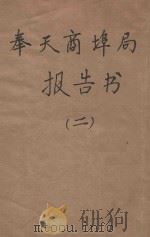 奉天商埠局
报告书
(二)